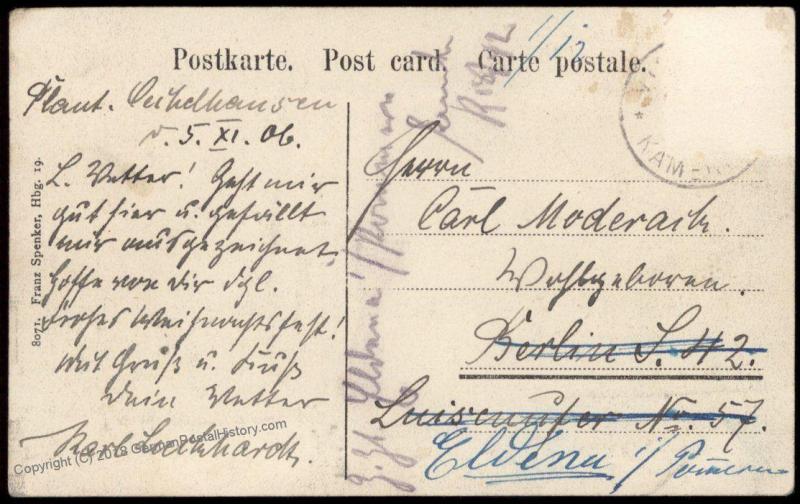 Postkarte. Post card. Carte postale.
Plant.
d. 5. XI. 06.
L. Vetter! Geht mir
gut hier u. gefällt
mir ausgezeichnet,
hoffe von dir dgl.
Frohes Weihnachtsfest!
Mit Gruß u. Kuß
dein Vetter
Karl
8071. Franz Spenker, Hbg. 19.
KAMER
Herrn
Carl Moderach.
Wohlgeboren.
Berlin S. 42.
Luisenufer No. 57.
Eldena i/Pommern
z. Zt. Eldena i/Pommern
1/12
Copyright (C) 2018 GermanPostalHistory.com